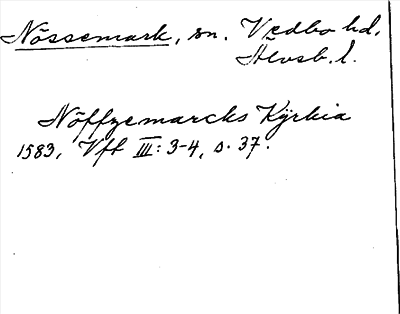 Nössemark, sn. Vedbo hd.
Älvsb. l.
Nöffzemarcks Kÿrkia
1583, Vft III: 3-4, s. 37.